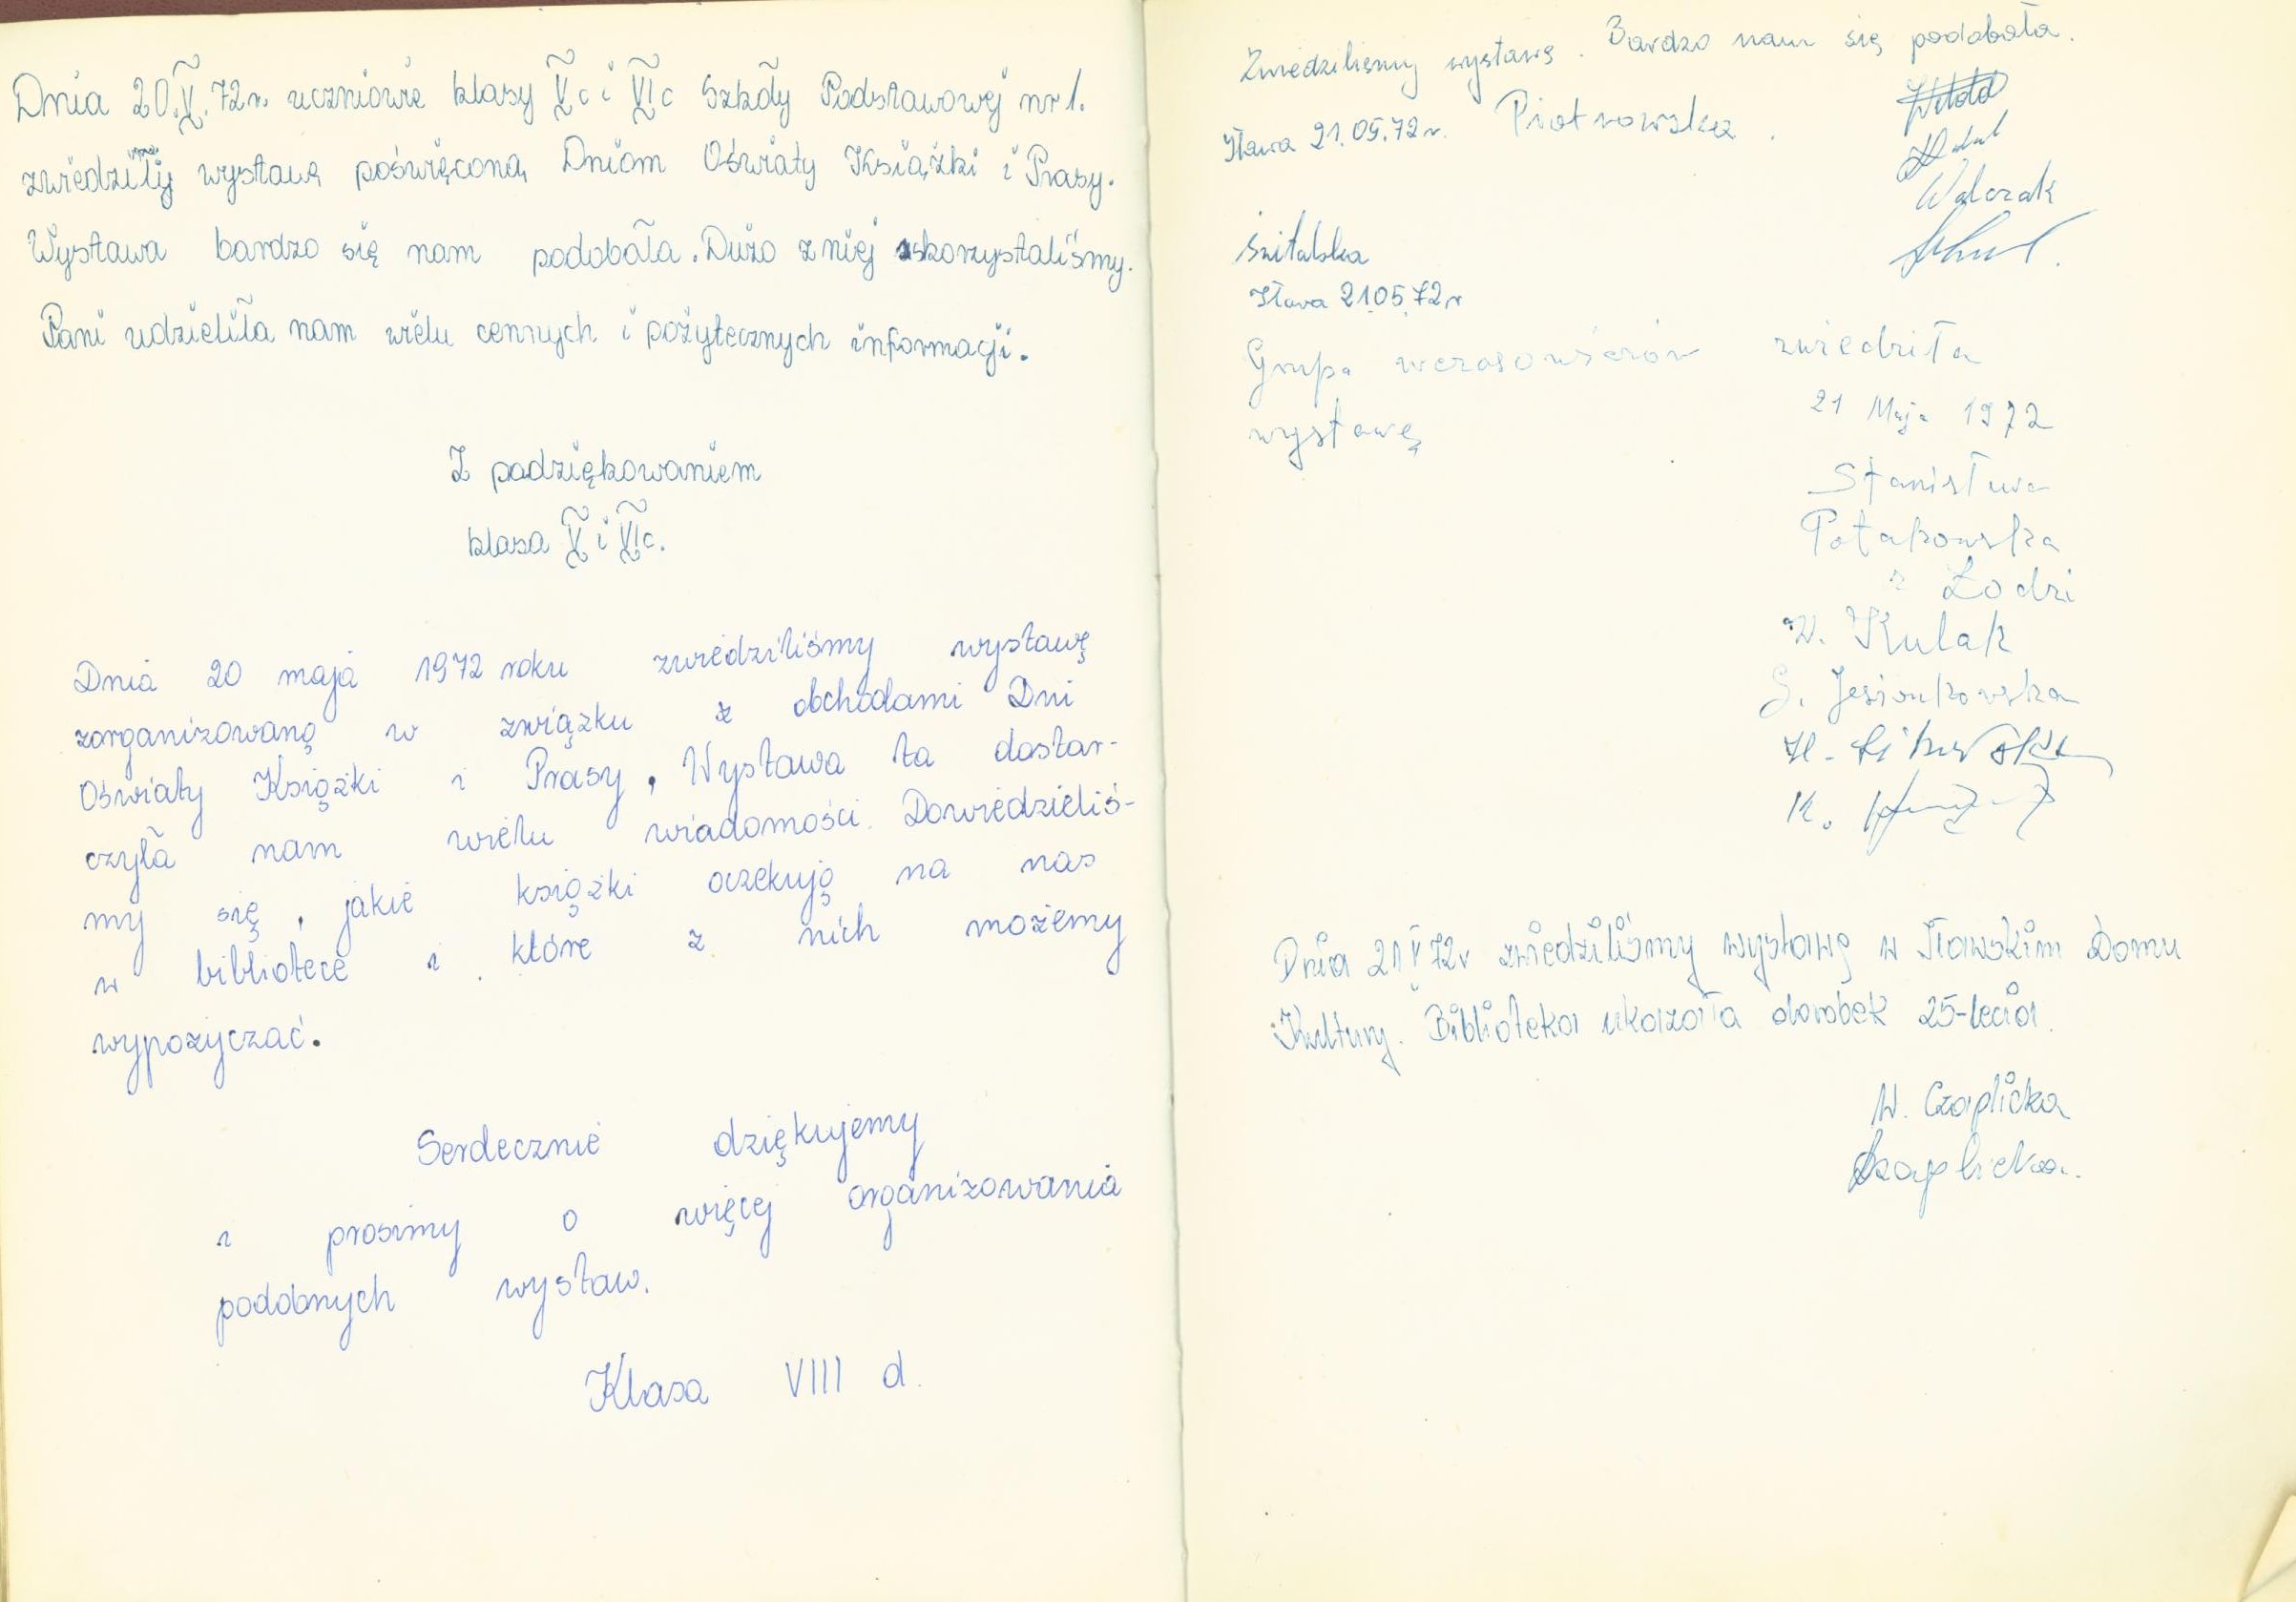 Dnia 20.V.72r. uczniowie klasy Vc i VIc Szkoły Podstawowej nr 1.
zwiedziły wystawę poświęconą Dniom Oświaty Książki i Prasy.
Wystawa bardzo się nam podobała. Dużo z niej skorzystaliśmy.
Pani udzieliła nam wielu cennych i pożytecznych informacji.
Z podziękowaniem
klasa V i VIc.
Dnia 20 maja 1972 roku zwiedziliśmy wystawę
zorganizowaną w związku z obchodami Dni
Oświaty Książki i Prasy. Wystawa ta dostar-
czyła nam wielu wiadomości. Dowiedzieliś-
my się, jakie książki oczekują na nas
w bibliotece i które z nich możemy
wypożyczać.
Serdecznie dziękujemy
i prosimy o więcej organizowania
podobnych wystaw.
Klasa VIII d.
Zwiedziliśmy wystawę. Bardzo nam się podobała.
Iława 21.05.72r. Piotrowska.
Walczak
Szitalska
Iława 21.05.72r
Grupa wczasowiczów zwiedziła
wystawę
21 Maja 1972
Stanisława
Potakowska
z Łodzi
W. Kulak
G. Jesionkowska
K.
Dnia 21 V 72r zwiedziliśmy wystawę w Iławskim Domu
Kultury. Biblioteka ukazała dorobek 25-lecia.
W. Czaplicka
Czaplicka.